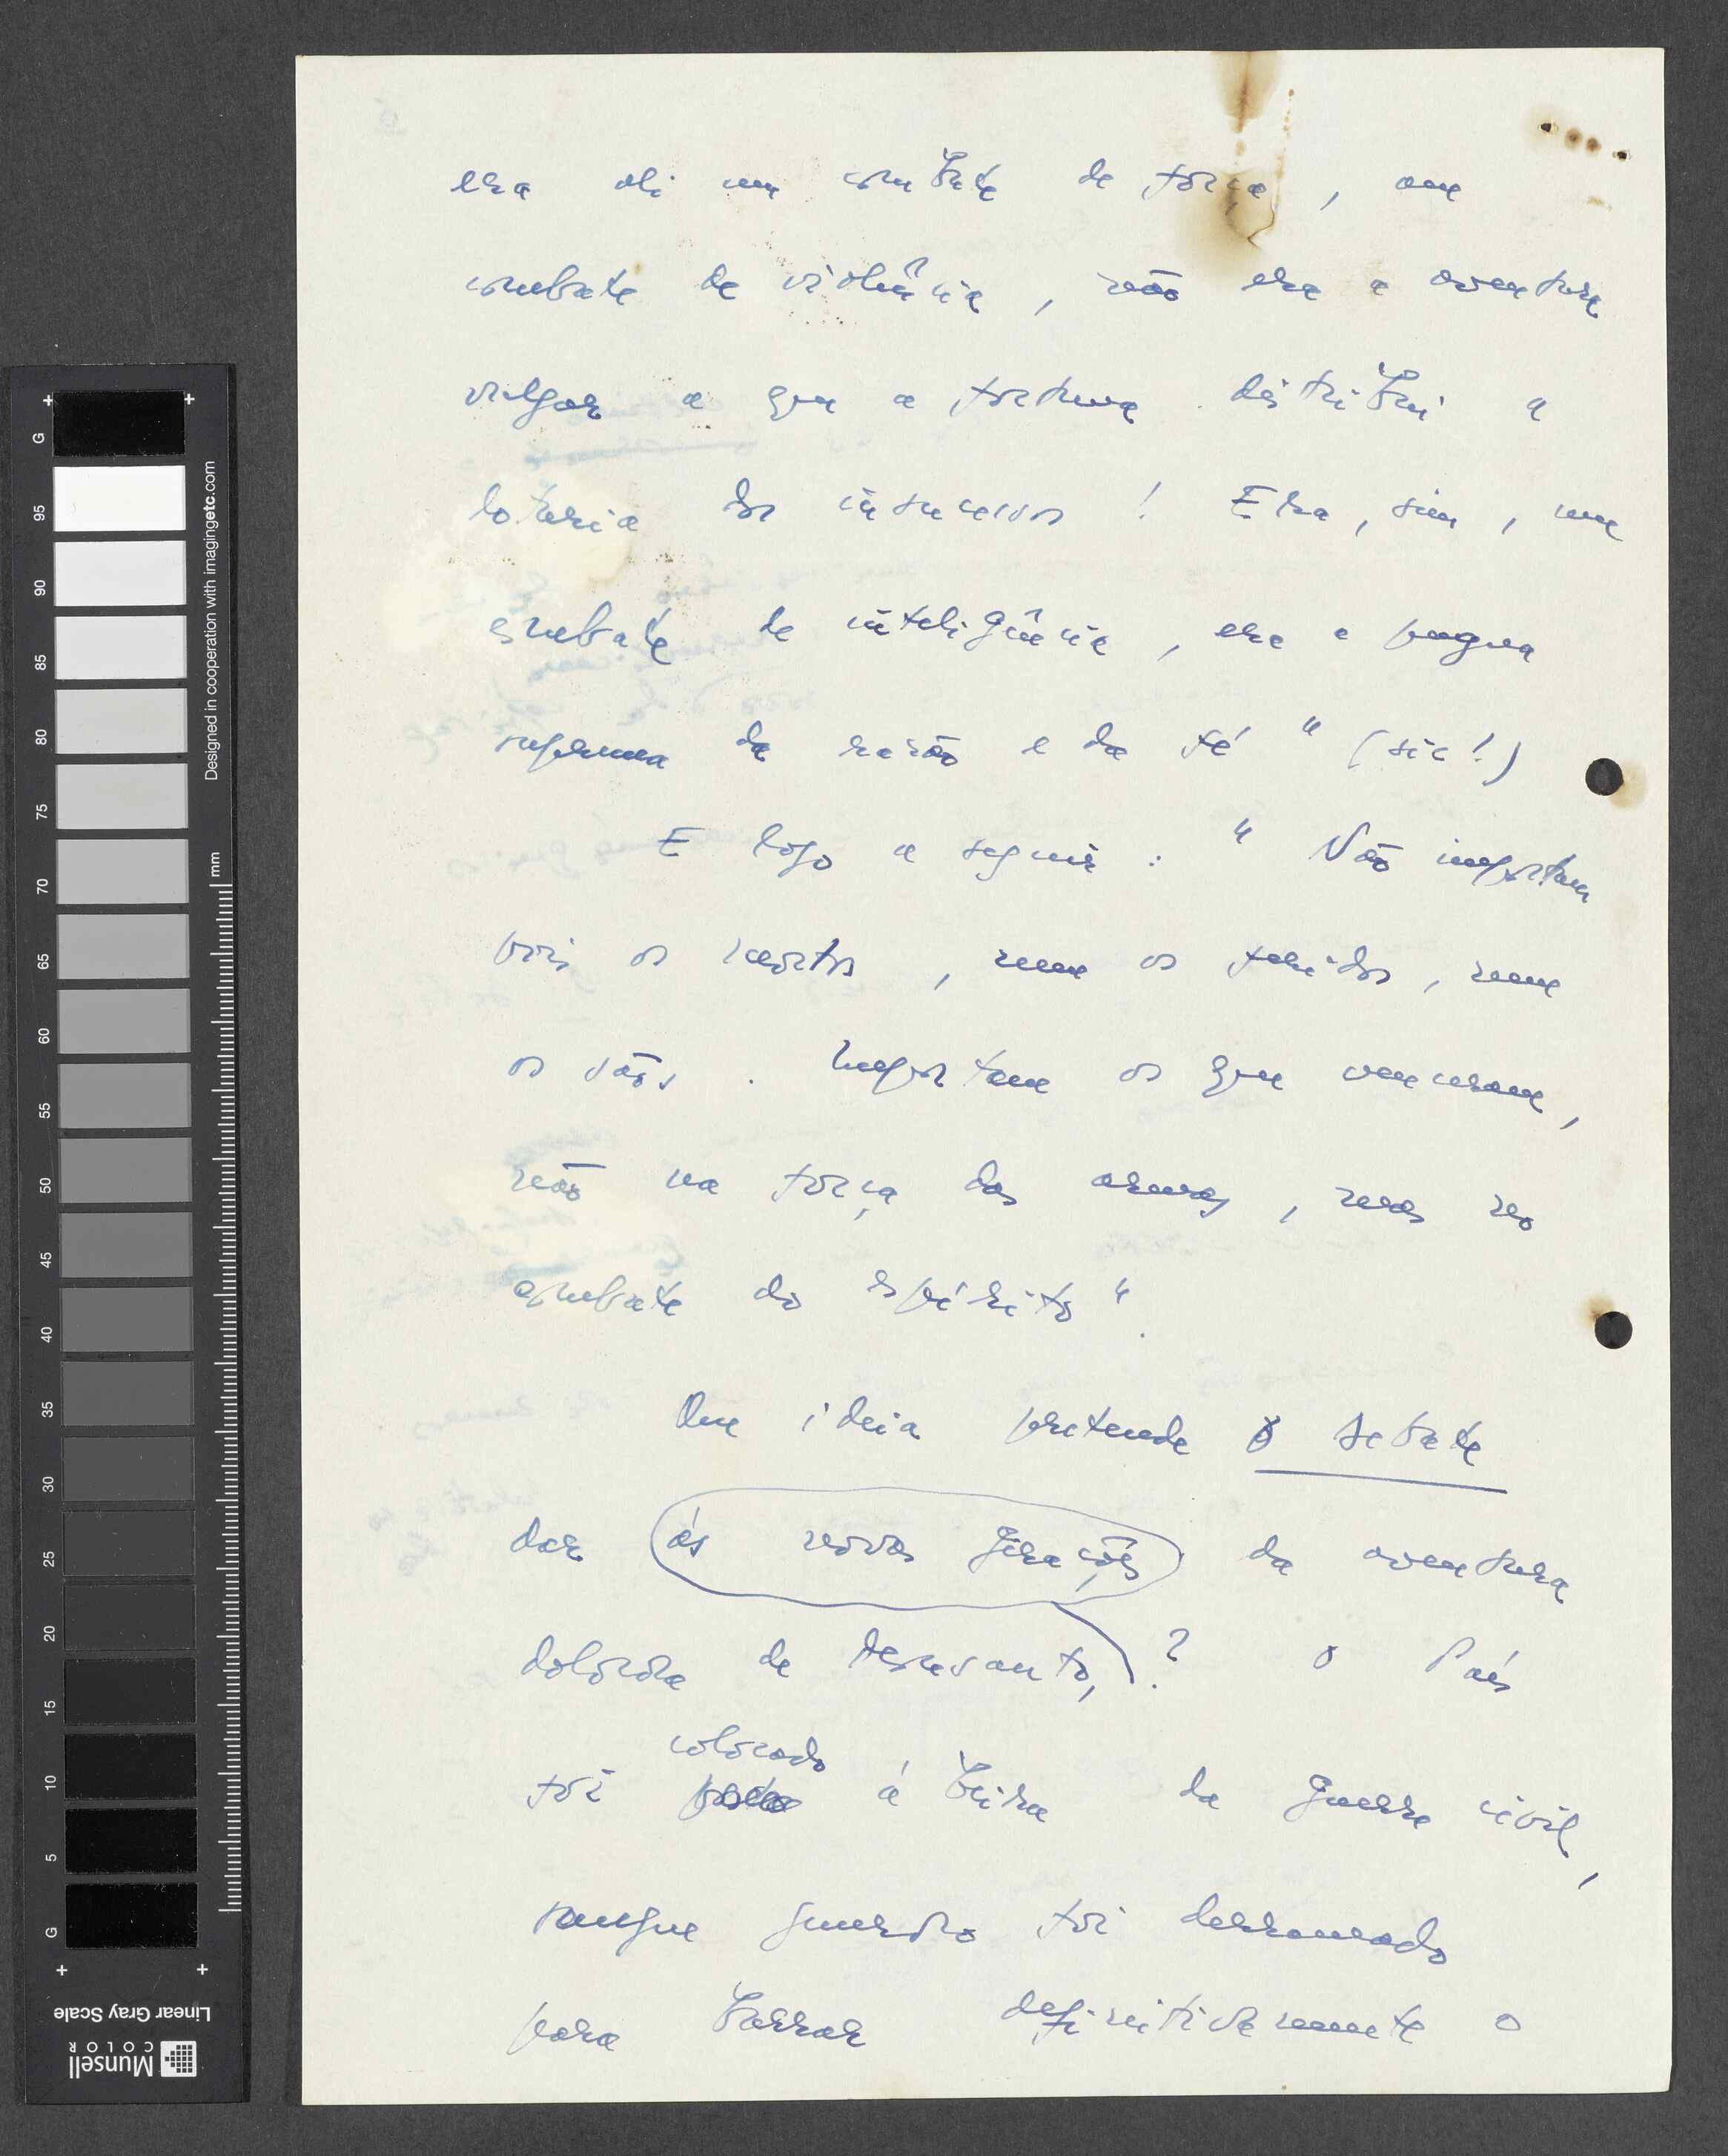 era ali um combate de força, um
combate de violência, não era a aventura
vulgar a que a fortuna distribui a
lotaria dos insucessos! Era, sim, um
combate de inteligência, era a pugna
suprema da razão e da fé" (sic!)
E logo a seguir: "Não importam
pois os mortos, nem os feridos, nem
os sãos. Importam os que venceram,
não na força das armas, mas no
combate do espírito".
Que ideia pretende o debate
dar às novas gerações da aventura
dolorosa de Monsanto,? O País
colocado
foi posto à beira da guerra civil,
sangue generoso foi derramado
para barrar definitivamente o
G 95 90 85 80 75 70 65 60 55 50 45 40 35 30 25 20 15 10 5 G
mm
Designed in cooperation with imagingetc.com
Linear Gray Scale
Munsell
COLOR